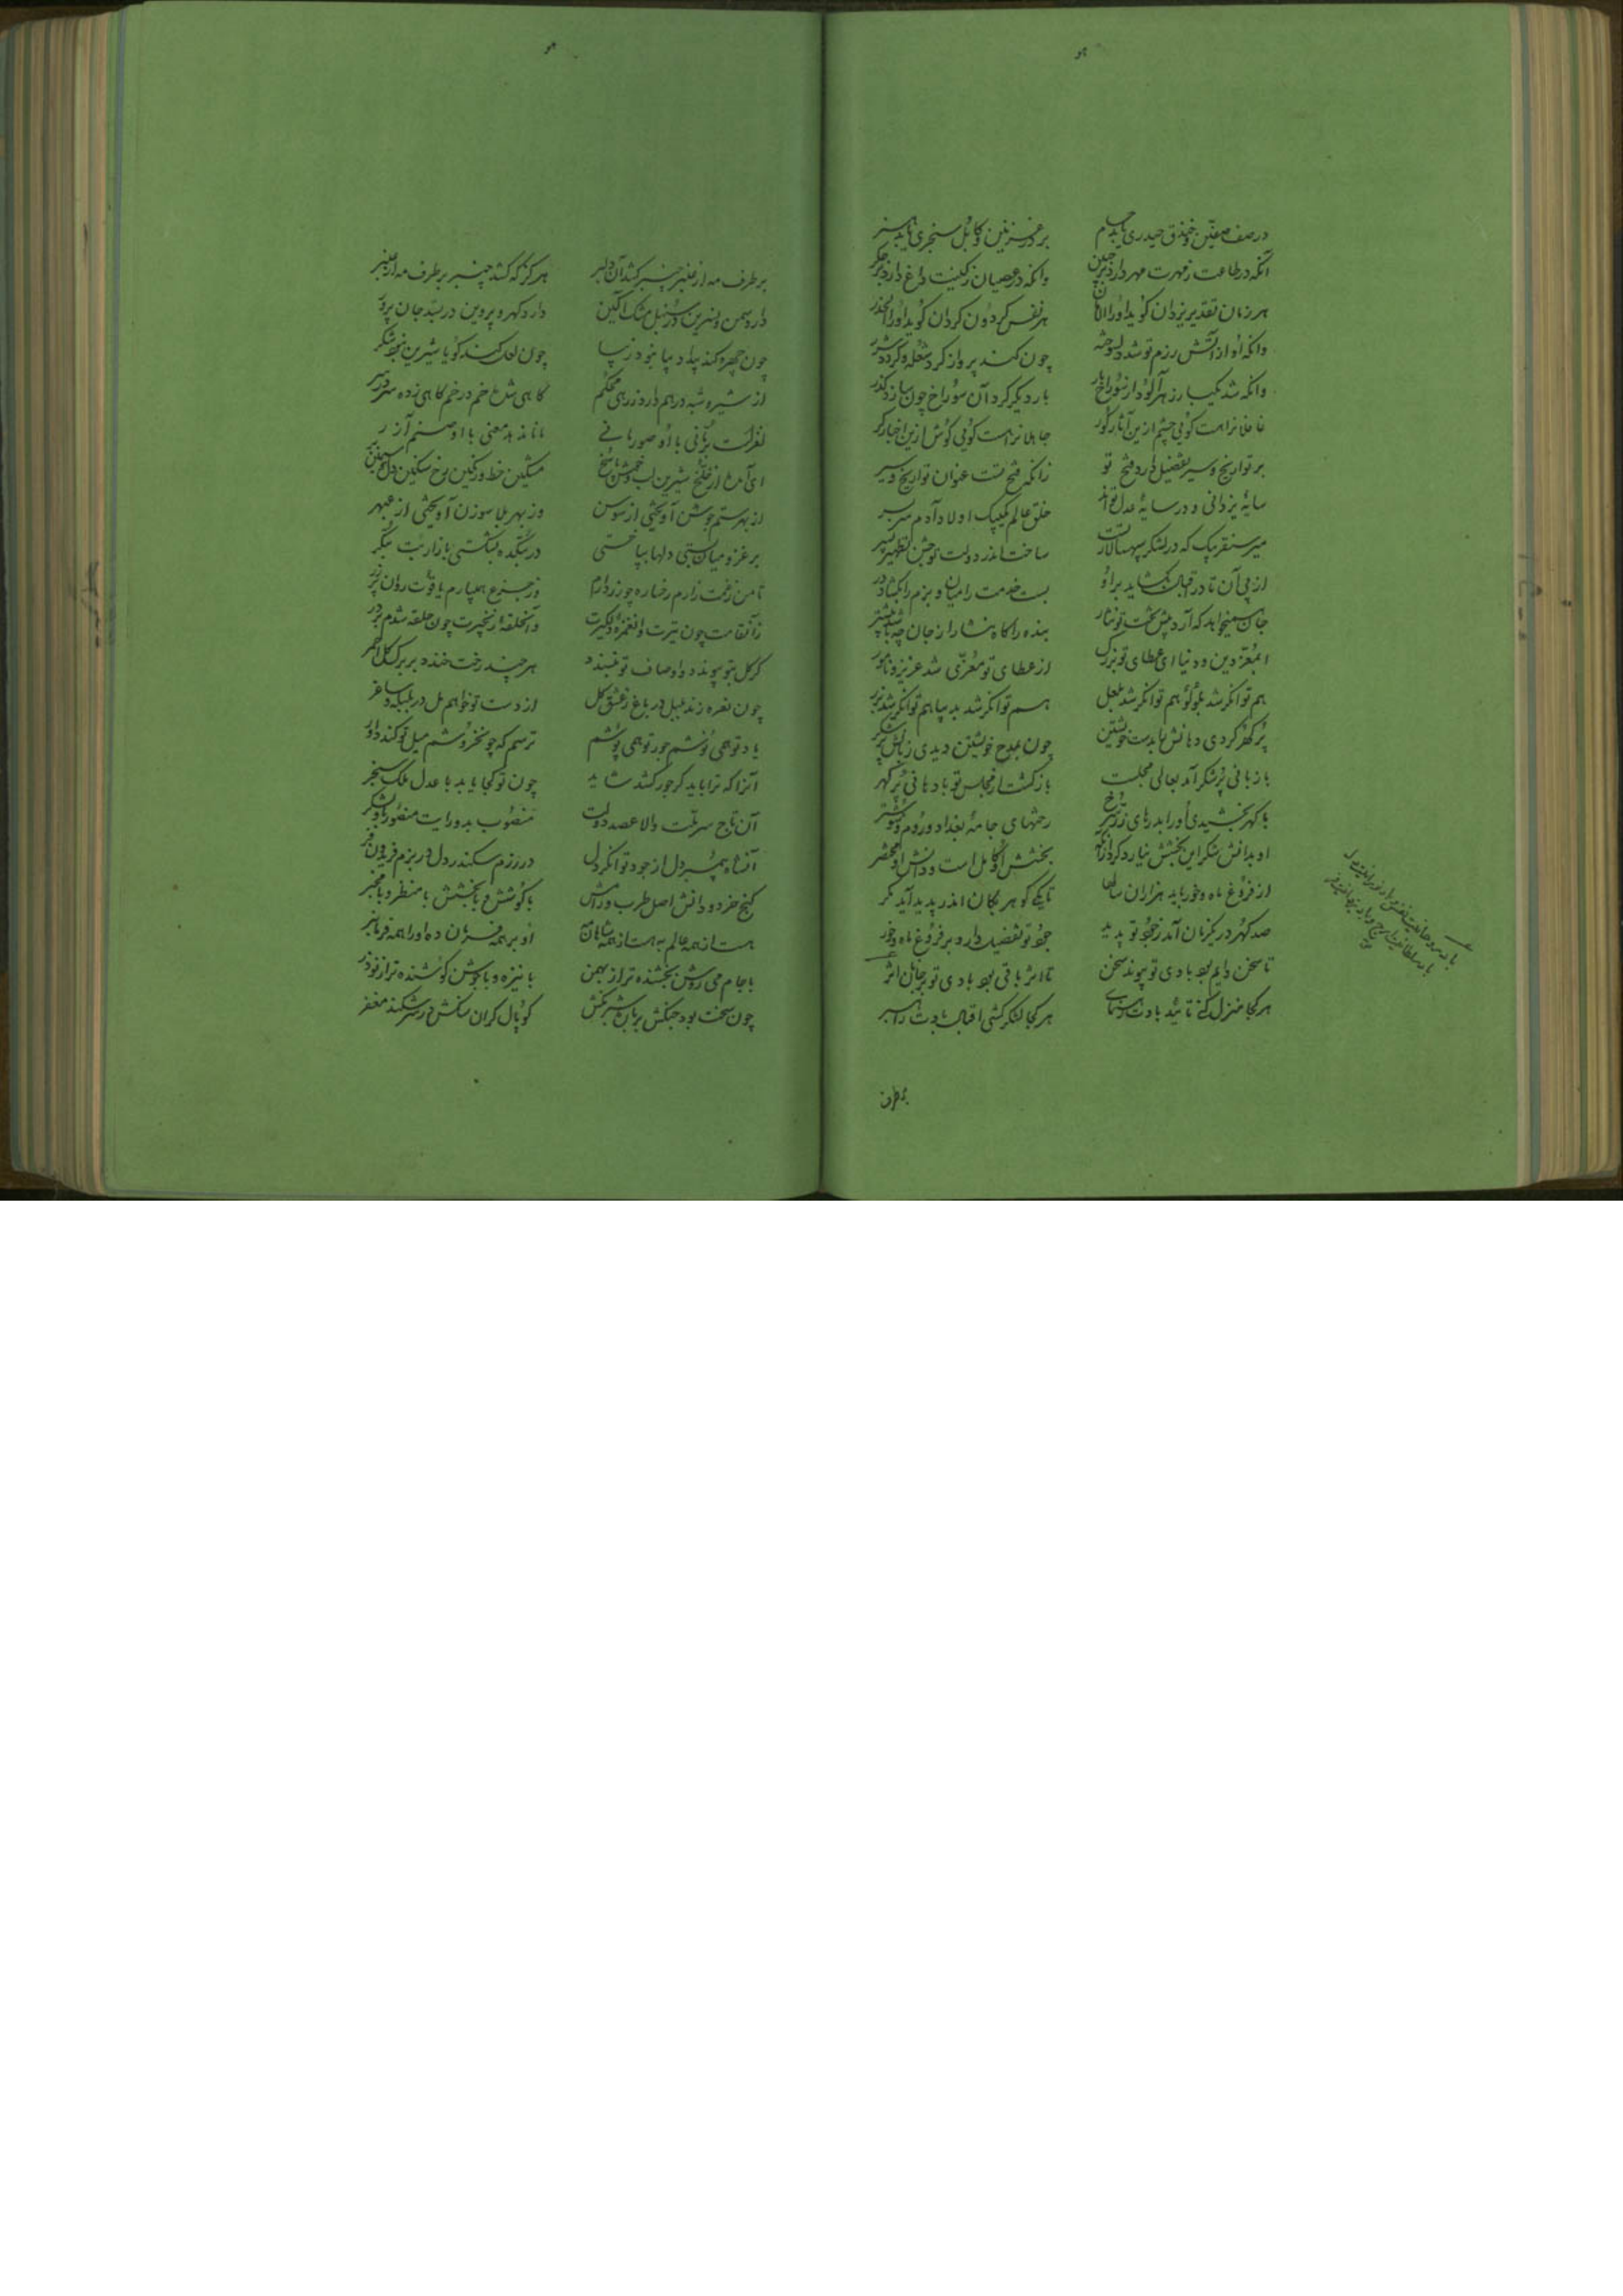 هو
در صف صفین و خندق حیدری باید حسام
بر در غزنین و کابل سنجری باید
آنکه در طاعت ز مهرت مهر دارد بر جبین
وانکه در عصیان ز کینت داغ دارد بر جگر
هر زمان تقدیر یزدان گوید او را الامان
هر نفس گردون گردان گوید او را الحذر
وانکه او از آتش رزم تو شد دلسوخته
چون کند پرواز گرد شعله و گرد شرر
وانکه شد یکبار زهرآلود از سوراخ مار
بار دیگر گرد آن سوراخ چون سازد گذر
غافلانراست کوئی چشم ازین آثار کور
جاهلانراست کوئی گوش ازین اخبار کر
بر تواریخ و سیر تفضیل دارد فتح تو
زانکه فتح تست عنوان تواریخ و سیر
سایهٔ یزدانی و در سایهٔ عدل تواند
خلق عالم یکبیک اولاد آدم سر بسر
میر سنقر بیک که در لشکر سپهسالار تست
ساخت اندر دولت تو جشن
از پی آن تا در اقبال بگشاید بر او
بست خدمت را میان و بزم را بگشاد در
جان همیخواهد که آرد پیش تخت تو نثار
بنده را گاه نثار از جان چه باشد بیشتر
ای معز دین و دنیا ای عطای تو بزرگ
از عطای تو معزی شد عزیز و نامور
هم توانگر شد بلولو هم توانگر شد بلعل
هم توانگر شد بدیبا هم توانگر شد بزر
پر گهر کردی دهانش را بدست خویشتن
چون بمدح خویشتن دیدی زبانش پر شکر
با زبانی پر شکر آمد بعالی مجلست
بازگشت از مجلس تو با دهانی پر گهر
با گهر بخشیدی او را بدرهای زر سرخ
رختهای جامهٔ بغداد و روم و شوشتر
او بدانش شکر این بخشش نیارد کرد ازانکه
بخشش او کامل است و دانش او مختصر
از فروغ ماه و خور باید هزاران سالها
تا یکی گوهر بکان اندر پدید آید مگر
صد گهر در یکزمان آمد ز جود تو پدید
جود تو تفضیل دارد بر فروغ ماه و خور
تا سخن دایم بود بادی تو پیوند سخن
تا اثر باقی بود بادی تو بر جهان اثر
هر کجا منزل کنی تائید بادت رهنمای
هر کجا لشکر کشی اقبال بادت راهبر
هو
بر طرف مه از عنبر چنبر کشد آن دلبر
هرگز که کشد چنبر بر طرف مه از عنبر
دارد سمن و نسرین در سنبل مشک آگین
دارد گهر و پروین در بسد جان پرور
چون چهره کند پیدا دیبا بود زیبا
چون لعل کند گویا شیرین بود شکر
از شیره شبه درهم دارد زرهی محکم
گاهی شده خم در خم گاهی زده سر در سر
لفظست مانی با او صورمانی
ماند بمعنی با او صنم آزر
ای آمده از خلخ شیرین لب و خوش پاسخ
مشکین خط و رنگین رخ سنگین دل و سیمین بر
از بهر ستم جوشن آویختی از سوسن
وز بهر بلا سوزن آویختی از عبهر
بر غمزه میان بستی دلها بپا خستی
در بتکده بشکستی بازار بت بتگر
تا من ز غمت زارم رخساره چو زر دارم
وز جزع همی بارم یاقوت روان بر زر
زان قامت چون تیرت وان غمزهٔ دلگیرت
وان حلقهٔ زنجیرت چون حلقه شدم بر در
گر گل بتو پیوندد و اوصاف تو بپسندد
هر چند رخت خندد بر برگ گل احمر
چون نعره زند بلبل در باغ ز عشق گل
از دست تو خواهم مل در بلبله و ساغر
یاد تو همی نوشم جور تو همی پوشم
ترسم که چو بخروشم میل تو کند داور
آنرا که ترا باید گر جور کشد شاید
چون تو کجا یابد با عدل ملک سنجر
آن تاج سر ملت والا عضد دولت
منصوب بدو رایت منصور بدو لشکر
آنشاه همه پر دل از جود توانگر دل
در رزم سکندر دل در بزم فریدون فر
گنج خرد و دانش اصل طرب و رامش
با کوشش و با بخشش با منظر و با مخبر
هست از همه عالم به هست از همه شاهان مه
او بر همه فرمان ده او را همه فرمانبر
با جام می روشن بخشنده تر از بهمن
با نیزه و با جوشن کوشنده تر از نوذر
چون سخت بود جنگش بریان شود
کوپال گران سنگش در سر شکند مغفر